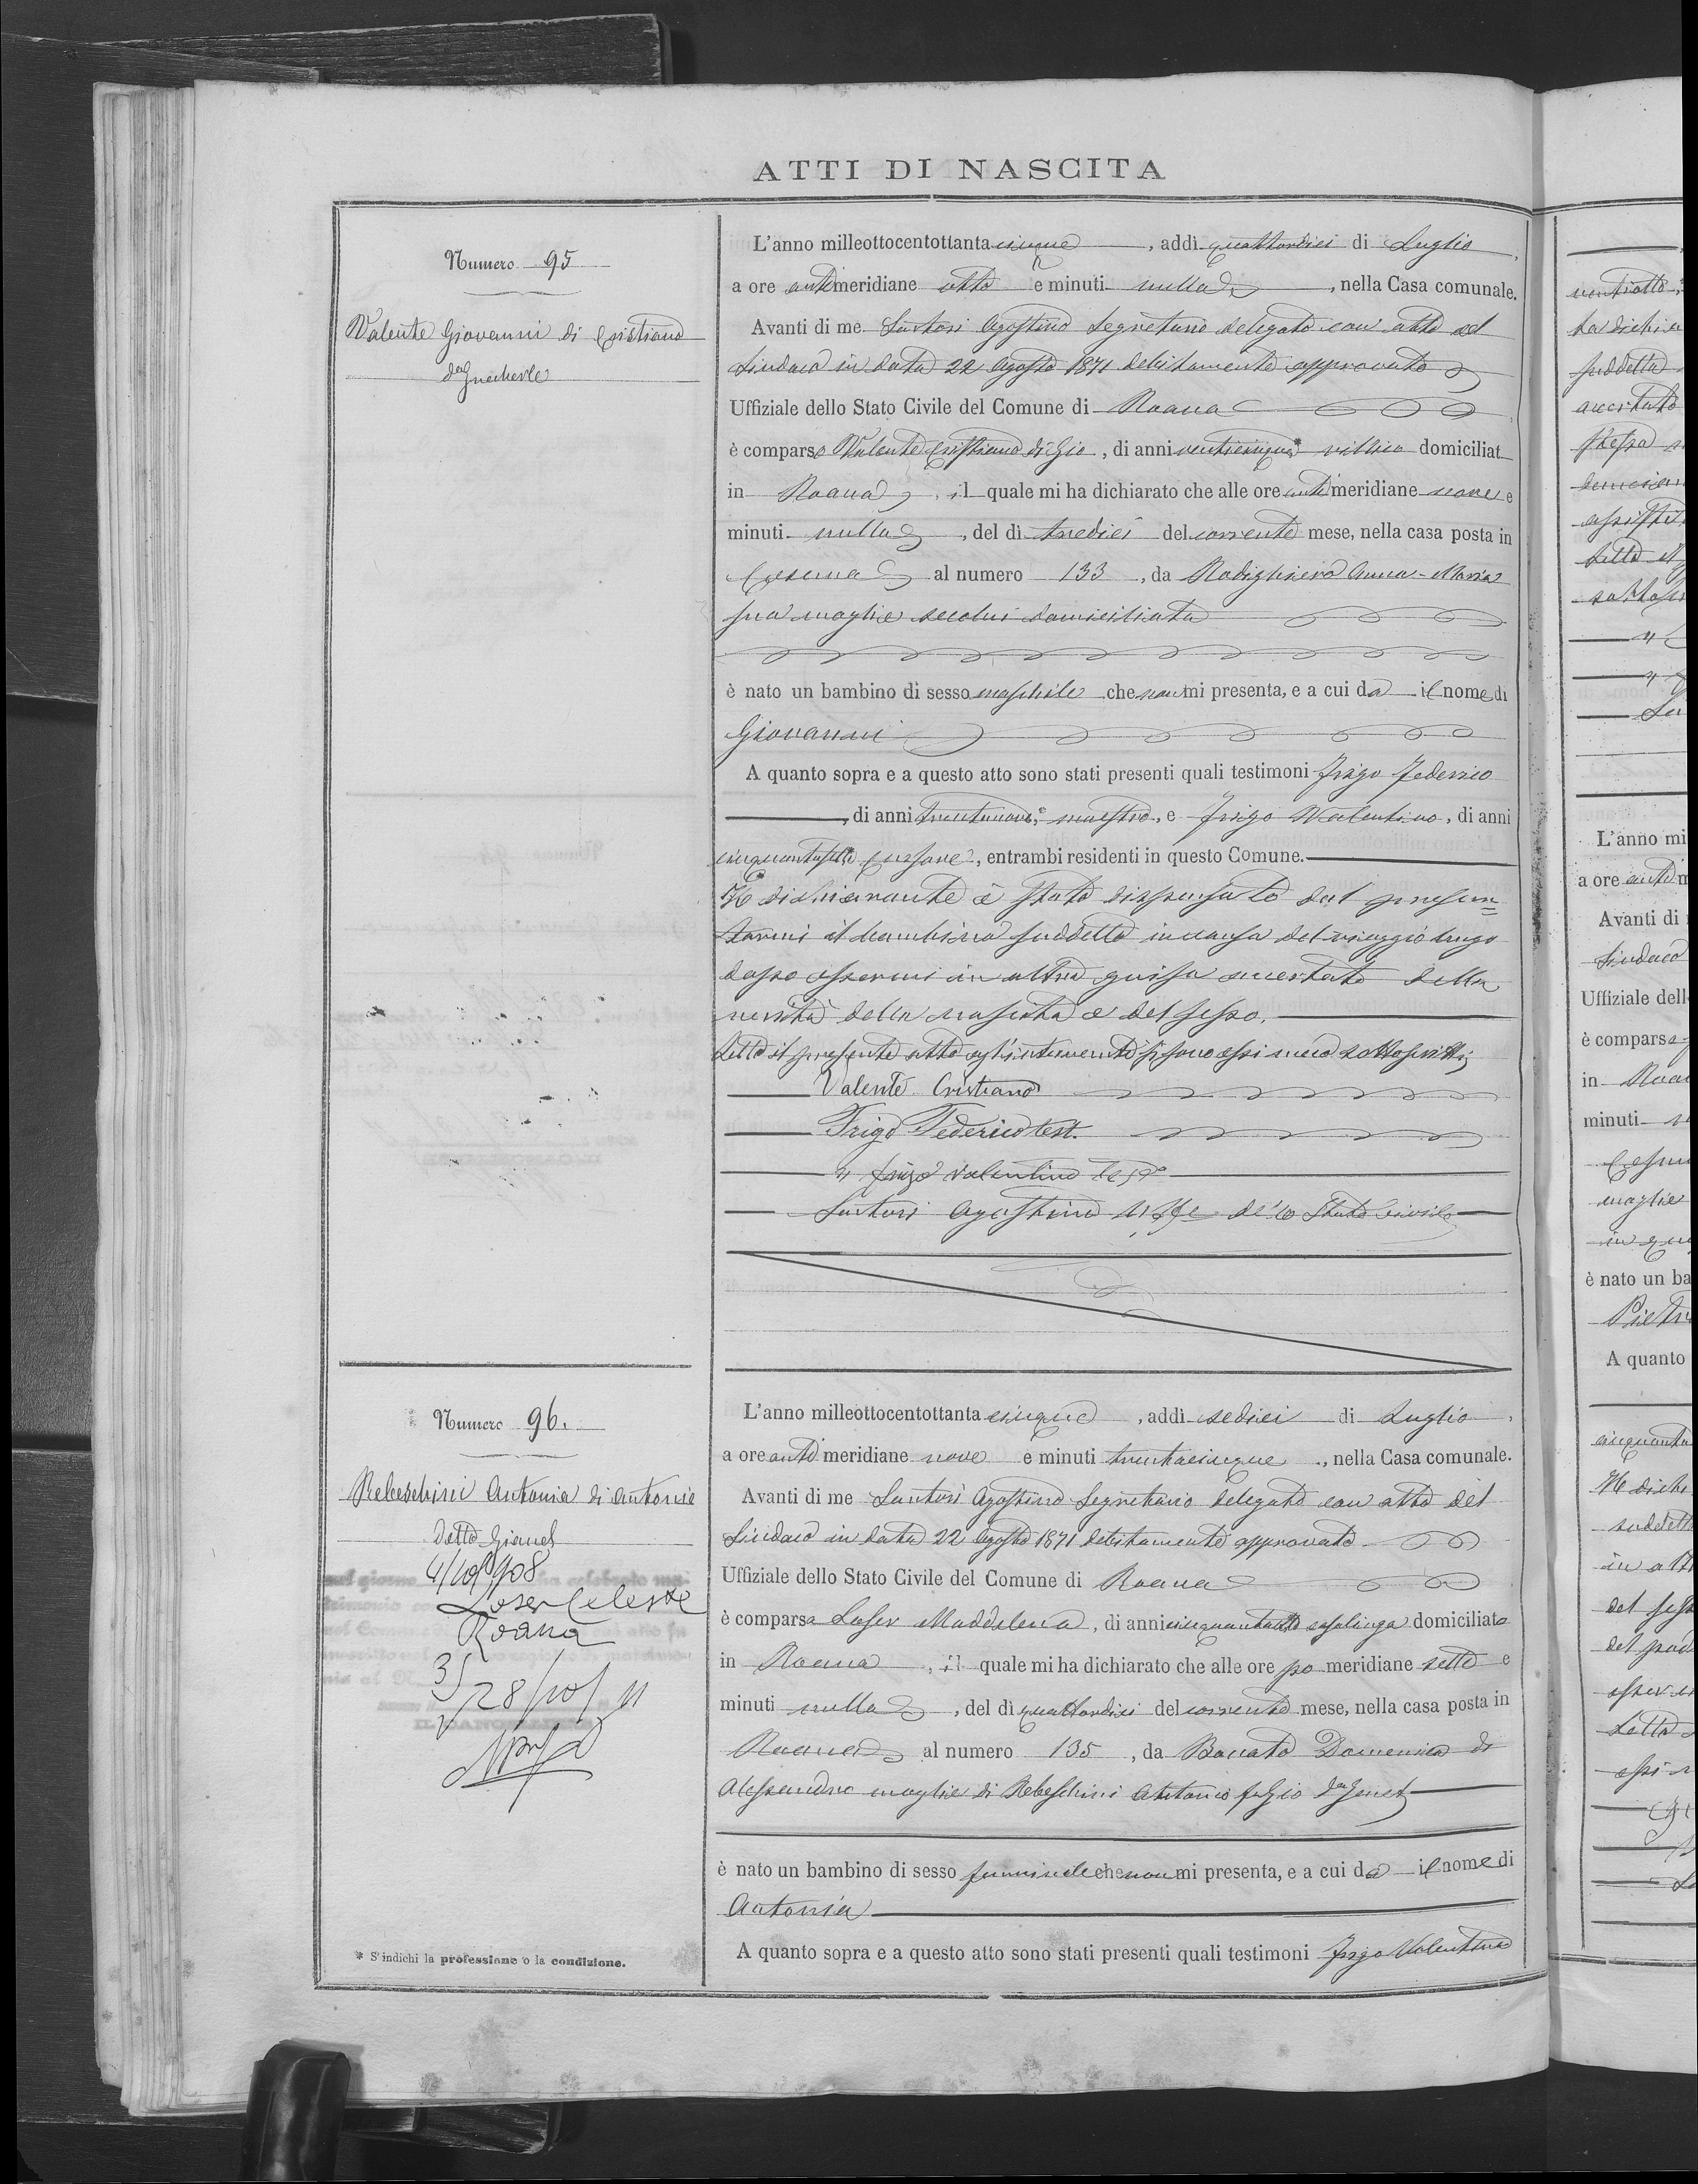 ATTI DI NASCITA
Numero 95
Valente Giovanni di Cristiano
L'anno milleottocentottanta cinque, addì quattordici di Luglio,
a ore antimeridiane otto e minuti nulla, nella Casa comunale.
Avanti di me Sartori Agostino Segretario delegato con atto del
Sindaco in data 22 Agosto 1871 debitamente approvato
Uffiziale dello Stato Civile del Comune di Roana
è comparso Valente Cristiano di Gio, di anni venticinque* villico domiciliat
in Roana, il quale mi ha dichiarato che alle ore antimeridiane nove e
minuti nulla, del dì tredici del corrente mese, nella casa posta in
Cesuna al numero 133, da Rodighiero Anna-Maria
sua moglie secolui domiciliata
è nato un bambino di sesso maschile che non mi presenta, e a cui dà il nome di
Giovanni
A quanto sopra e a questo atto sono stati presenti quali testimoni Frigo Federico
, di anni trentanove,* maestro, e Frigo Valentino, di anni
cinquantasette cursore, entrambi residenti in questo Comune.
Il dichiarante è stato dispensato dal presen=
tarmi il bambino suddetto in causa del viaggio lungo
dopo essermi in altra guisa accertato della
verità della nascita e del sesso.
Letto il presente atto agl'intervenuti si sono essi meco sottoscritti
Valente Cristiano
Frigo Federico test.
" Frigo Valentino
Sartori Agostino Uffe dello Stato Civile
Numero 96.
Rebeschini Antonia di Antonio
detto
4/10/908
Loser Celeste
Roana
28/10/11
L'anno milleottocentottanta cinque, addì sedici di Luglio,
a ore antimeridiane nove e minuti trentacinque, nella Casa comunale.
Avanti di me Sartori Agostino Segretario delegato con atto del
Sindaco in data 22 Agosto 1871 debitamente approvato
Uffiziale dello Stato Civile del Comune di Roana
è comparsa Loser Maddalena, di anni cinquantotto casalinga domiciliata
in Roana, il quale mi ha dichiarato che alle ore pomeridiane sette e
minuti nulla, del dì quattordici del corrente mese, nella casa posta in
Roana al numero 135, da Bonato Domenica di
Alessandro moglie di Rebeschini Antonio fu Gio
è nato un bambino di sesso femminile che non mi presenta, e a cui dà il nome di
Antonia
A quanto sopra e a questo atto sono stati presenti quali testimoni Frigo Valentino
* S'indichi la professione o la condizione.